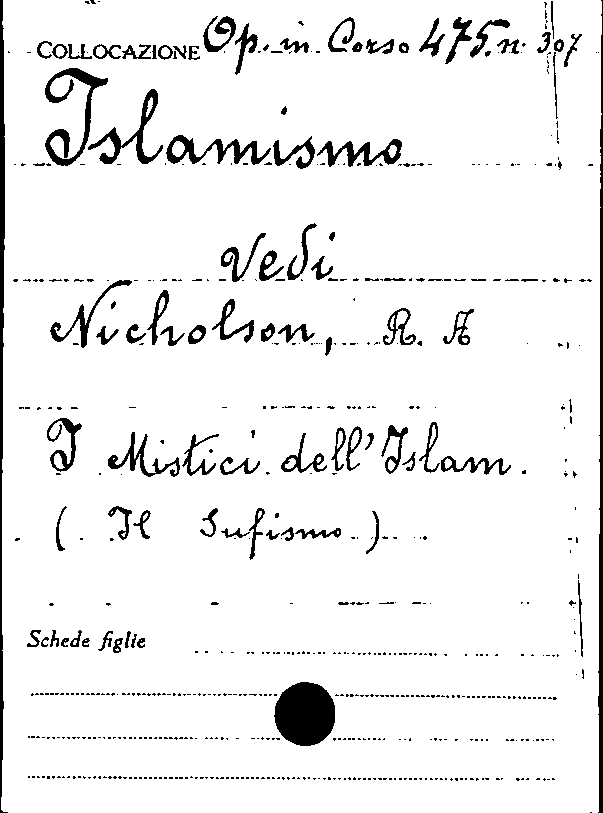 COLLOCAZIONE Op. in Corso 475. n. 307
Islamismo
Vedi
Nicholson, R. A
I Mistici dell'Islam.
( Il Sufismo )
Schede figlie